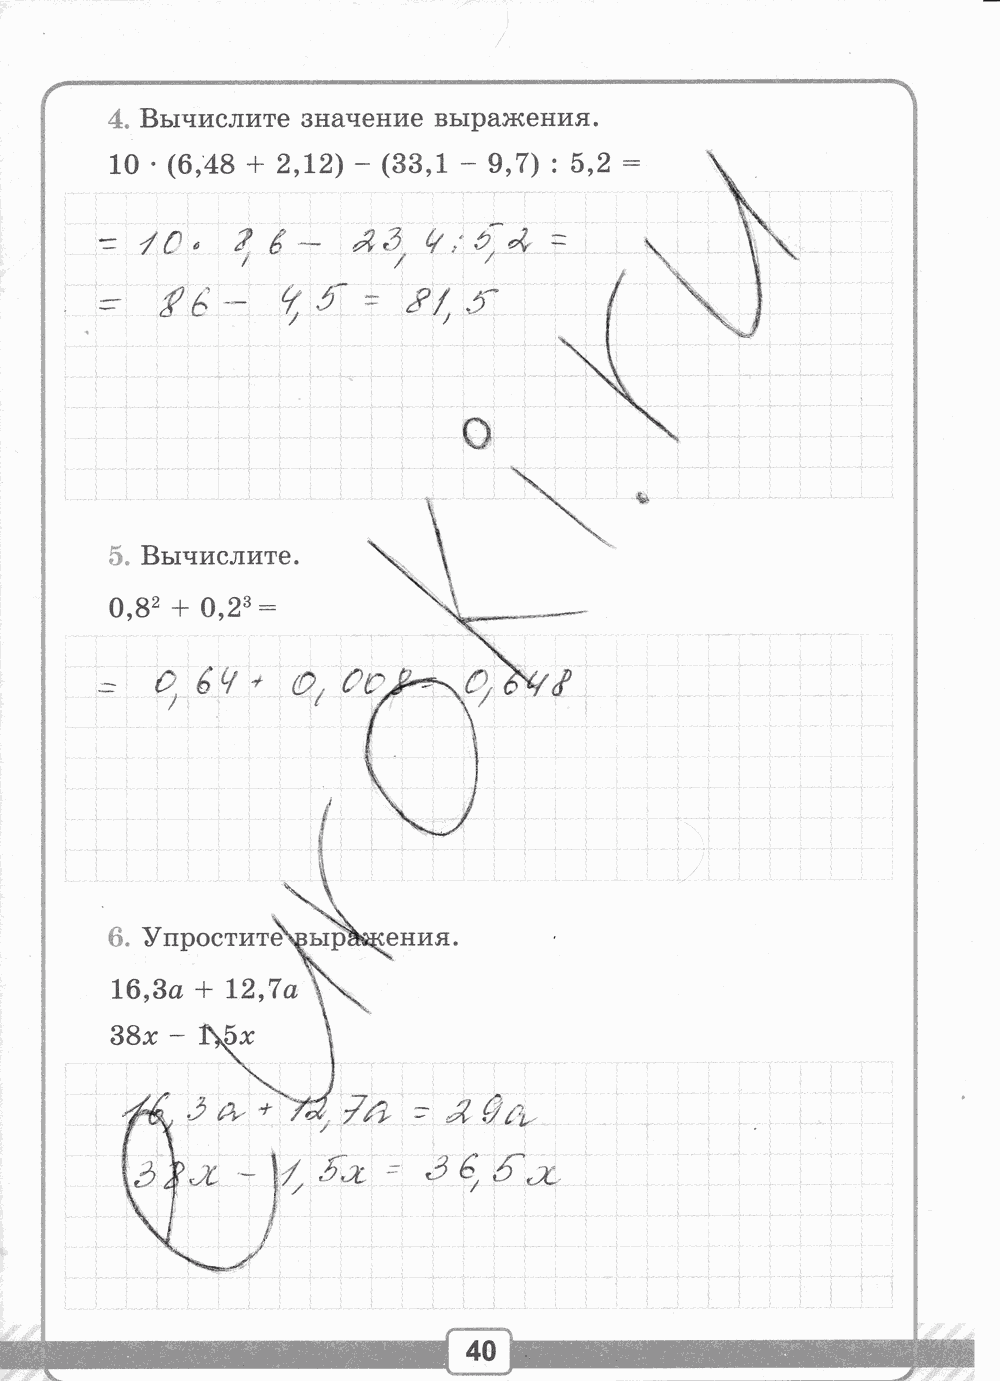 4. Вычислите значение выражения.
10 · (6,48 + 2,12) − (33,1 − 9,7) : 5,2 =
= 10 · 8,6 − 23,4 : 5,2 =
= 86 − 4,5 = 81,5
5. Вычислите.
0,8² + 0,2³ =
= 0,64 + 0,008 = 0,648
6. Упростите выражения.
16,3a + 12,7a
38x − 1,5x
16,3a + 12,7a = 29a
38x − 1,5x = 36,5x
40